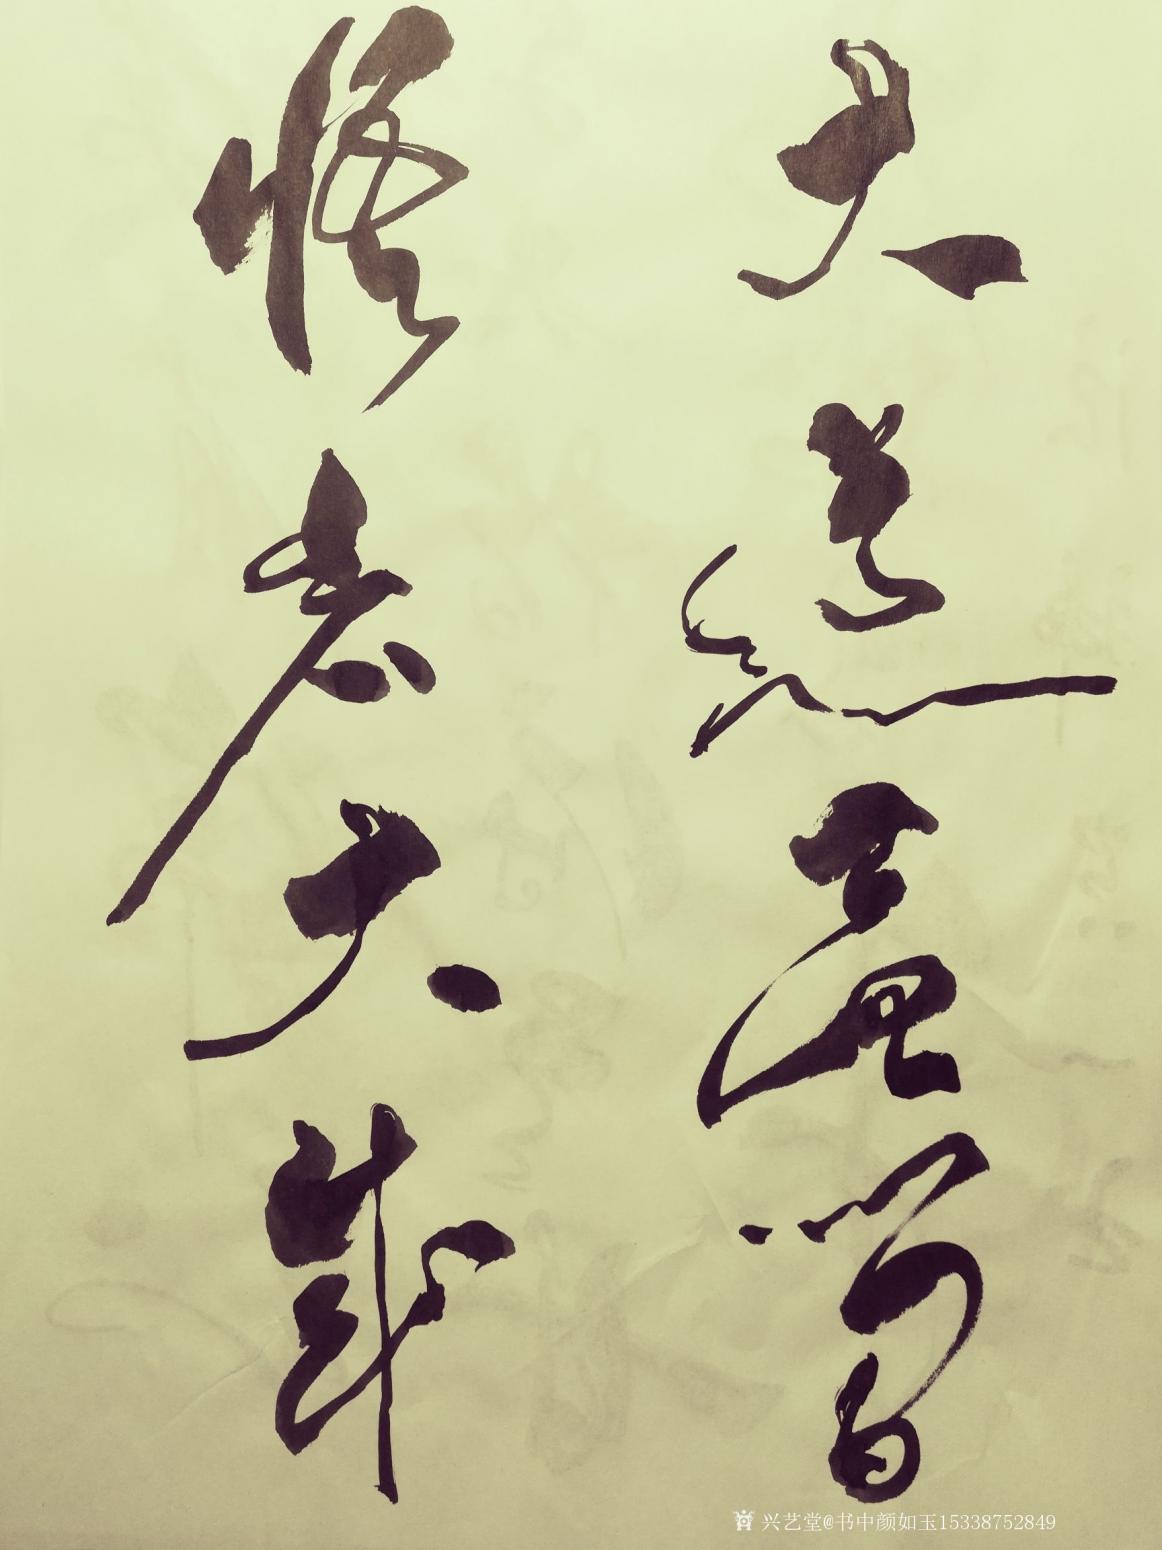 大道简
悟者大成
兴艺堂@书中颜如玉15338752849